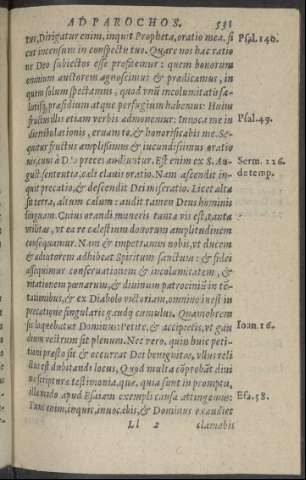 AD PAROCHOS. 531
tur, Dirigatur enim, inquit Propheta, oratio mea, si Psal. 140.
cut incensum in conspectu tuo. Quare nos hac ratio
ne Deo subiectos esse profitemur: quem bonorum
omnium auctorem agnoscimus & prædicamus, in
quem solum spectamus, quod vnū incolumitatis sa-
lutisq; præsidium atque perfugium habemus. Huius
fructus illis etiam verbis admonemur: Inuoca me in Psal. 49.
die tribulationis, eruam te, & honorificabis me. Se-
quitur fructus amplissimus & iucundissimus oratio
nis, cum à Deo preces audiuntur. Est enim ex S. Au- Serm. 226.
gust. sententia, cæli clauis oratio. Nam ascendit in- de temp.
quit precatio, & descendit Dei miseratio. Licet alta
sit terra, altum cælum: audit tamen Deus hominis
linguam. Cuius orandi muneris tanta vis est, tanta
vtilitas, vt ea re cælestium donorum amplitudinem
consequamur. Nam & impetramus nobis, vt ducem
& adiutorem adhibeat Spiritum sanctum: & fidei
assequimur conseruationem & incolumitatem, &
vitationem pœnarum, & diuinum patrociniū in tē-
tationibus, & ex Diabolo victoriam, omnino inest in
precatione singularis gaudij cumulus. Quamobrem
sic loquebatur Dominus: Petite, & accipietis, vt gau Ioan. 16.
dium vestrum sit plenum. Nec vero, quin huic peti-
tioni præsto sit & occurrat Dei benignitas, vllus reli
ctus est dubitandi locus, Quod multa cōprobāt diui
næ scripturæ testimonia, quæ, quia sunt in promptu,
illa modo apud Esaiam exempli causa attingemus: Esa. 58.
Tunc enim, inquit, inuocabis, & Dominus exaudiet
Ll 2 clamabis